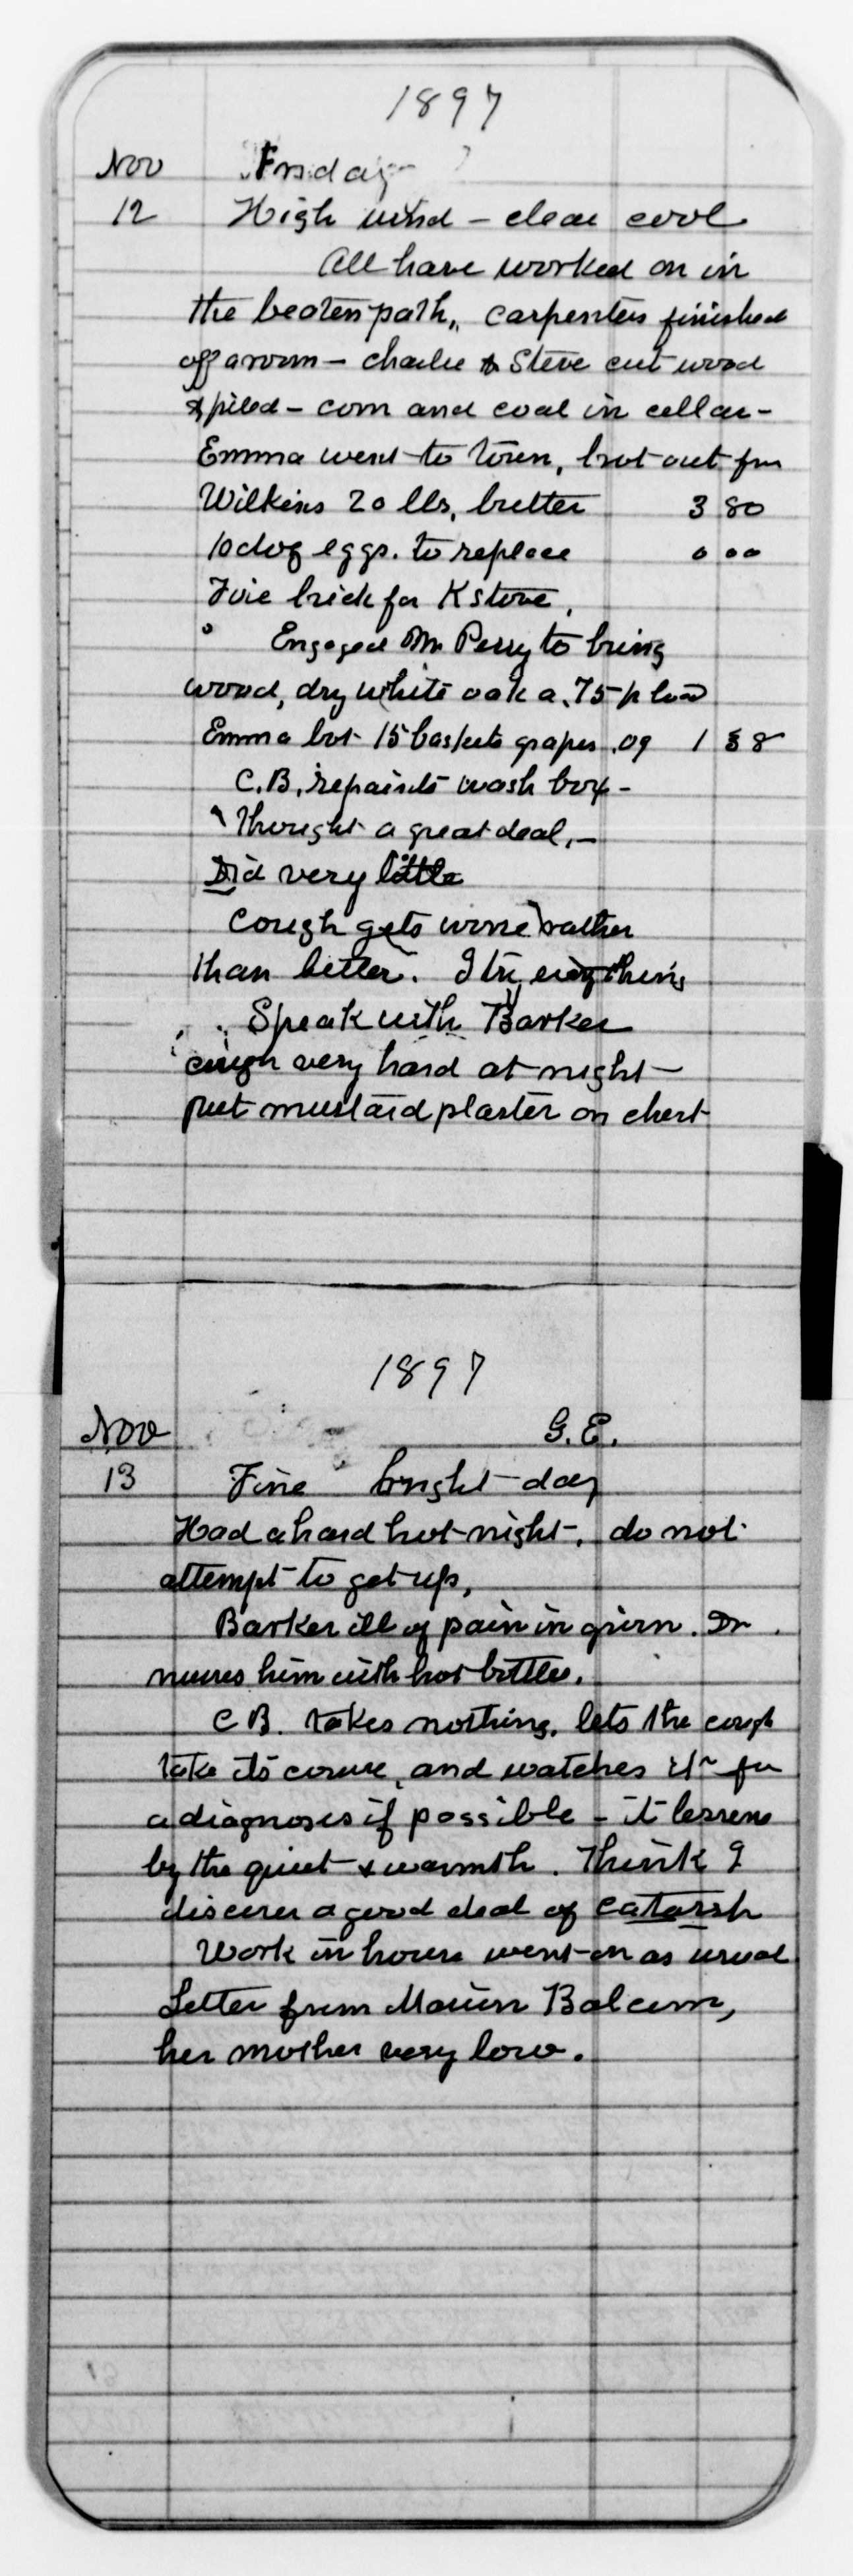 1897
Nov Friday
12 High wind – clear cool
All have worked on in
the beaten path, carpenters finished
off a room – charlie & Steve cut wood
& piled – corn and coal in cellar –
Emma went to town, brot out from
Wilkins 20 lbs, butter 3 80
10 doz eggs. to replace 0 00
Fire brick for K stove,
Engaged Mr Perry to bring
wood, dry white oak a .75 p load
Emma bot 15 baskets grapes .09 1 38
C.B. repaints wash box –
Thought a great deal, –
Did very little
cough gets worse rather
than better. I try everything
Speak with Barker
cough very hard at night –
put mustard plaster on chest
1897
Nov G.E.
13 Fine bright day
Had a hard hot night, do not
attempt to get up,
Barker ill of pain in groin. Dr
nurses him with hot bottles.
C B. takes nothing, lets the cough
take its course, and watches it for
a diagnosis if possible – it lessens
by the quiet & warmth. Think I
discover a good deal of catarrh
Work in house went on as usual
Letter from Marion Balcom,
her mother very low.